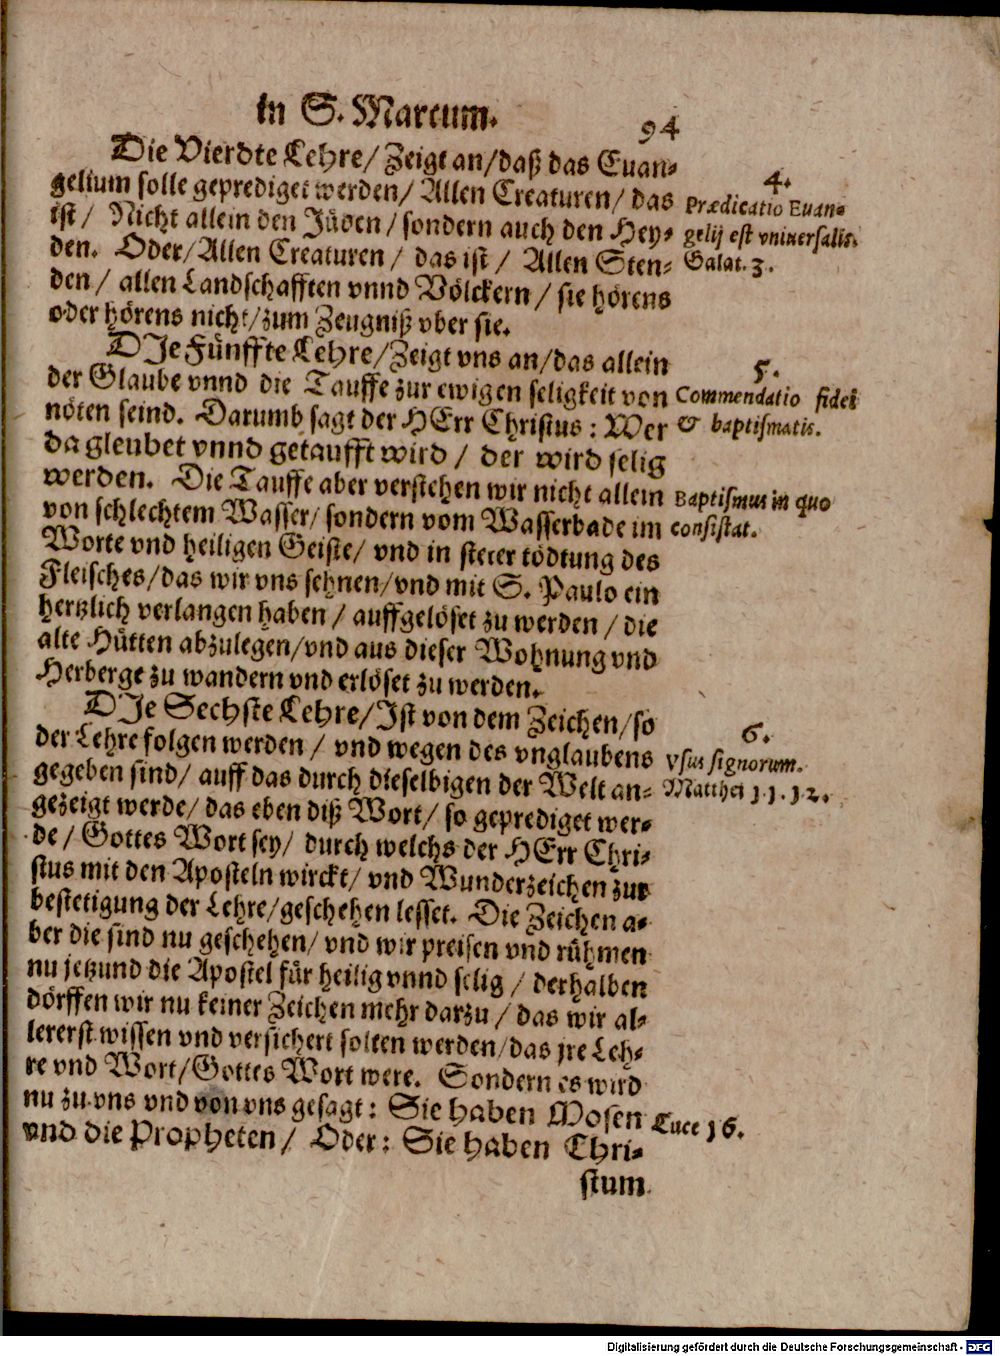 in S. Marcum.
94
Die Vierdte Lehre/ Zeigt an/ daß das Euan-
gelium solle geprediget werden/ Allen Creaturen/ das
ist/ Nicht allein den Jüden/ sondern auch den Hey-
den. Oder/ Allen Creaturen/ das ist/ Allen Sten-
den/ allen Landschafften vnnd Völckern/ sie hörens
oder hörens nicht/ zum Zeugniß vber sie.
4.
Prædicatio Euan-
gelij est vniuersalis.
Galat. 3.
DJe Fünffte Lehre/ Zeigt vns an/ das allein
der Glaube vnnd die Tauffe zur ewigen seligkeit von
nöten seind. Darumb sagt der HErr Christus: Wer
da gleubet vnnd getaufft wird/ der wird selig
werden. Die Tauffe aber verstehen wir nicht allein
von schlechtem Wasser/ sondern vom Wasserbade im
Worte vnd heiligen Geiste/ vnd in steter tödtung des
Fleisches/ das wir vns sehnen/ vnd mit S. Paulo ein
hertzlich verlangen haben/ auffgelöset zu werden/ die
alte Hütten abzulegen/ vnd aus dieser Wohnung vnd
Herberge zu wandern vnd erlöset zu werden.
5.
Commendatio fidei
& baptismatis.
Baptismus in quo
consistat.
DJe Sechste Lehre/ Jst von dem Zeichen/ so
der Lehre folgen werden/ vnd wegen des vnglaubens
gegeben sind/ auff das durch dieselbigen der Welt an-
gezeigt werde/ das eben diß Wort/ so geprediget wer-
de/ Gottes Wort sey/ durch welchs der HErr Chri-
stus mit den Aposteln wirckt/ vnd Wunderzeichen zur
bestetigung der Lehre/ geschehen lesset. Die Zeichen a-
ber die sind nu geschehen/ vnd wir preisen vnd rühmen
nu jetzund die Apostel für heilig vnnd selig/ derhalben
dörffen wir nu keiner Zeichen mehr darzu/ das wir al-
lererst wissen vnd versichert solten werden/ das jre Leh-
re vnd Wort/ Gottes Wort were. Sondern es wird
nu zu vns vnd von vns gesagt: Sie haben Mosen
vnd die Propheten/ Oder: Sie haben Chri-
stum
6.
Vsus signorum.
Matthei 11. 12.
Luce 16.
Digitalisierung gefördert durch die Deutsche Forschungsgemeinschaft - DFG